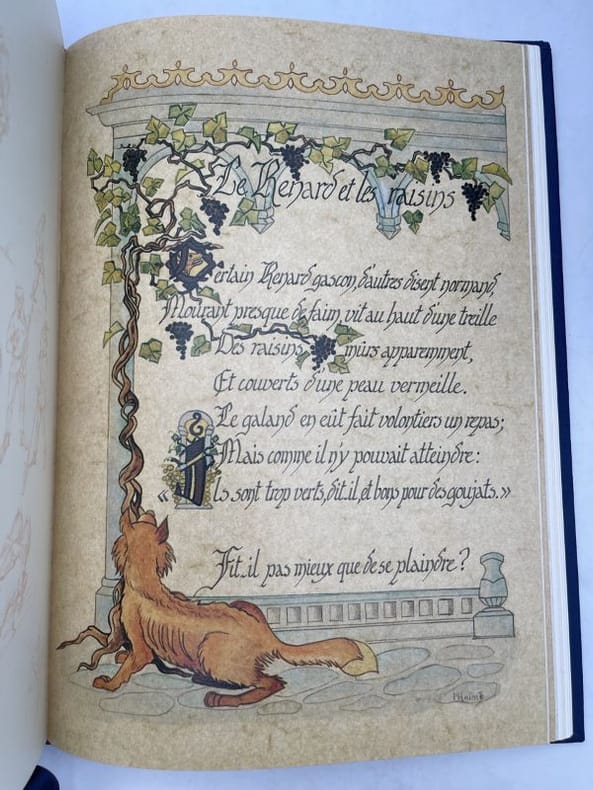 Le Renard et les raisins
Certain Renard gascon, d'autres disent normand,
Mourant presque de faim, vit au haut d'une treille
Des raisins mûrs apparemment,
Et couverts d'une peau vermeille.
Le galand en eût fait volontiers un repas;
Mais comme il n'y pouvait atteindre:
«Ils sont trop verts, dit-il, et bons pour des goujats.»
Fit-il pas mieux que de se plaindre?